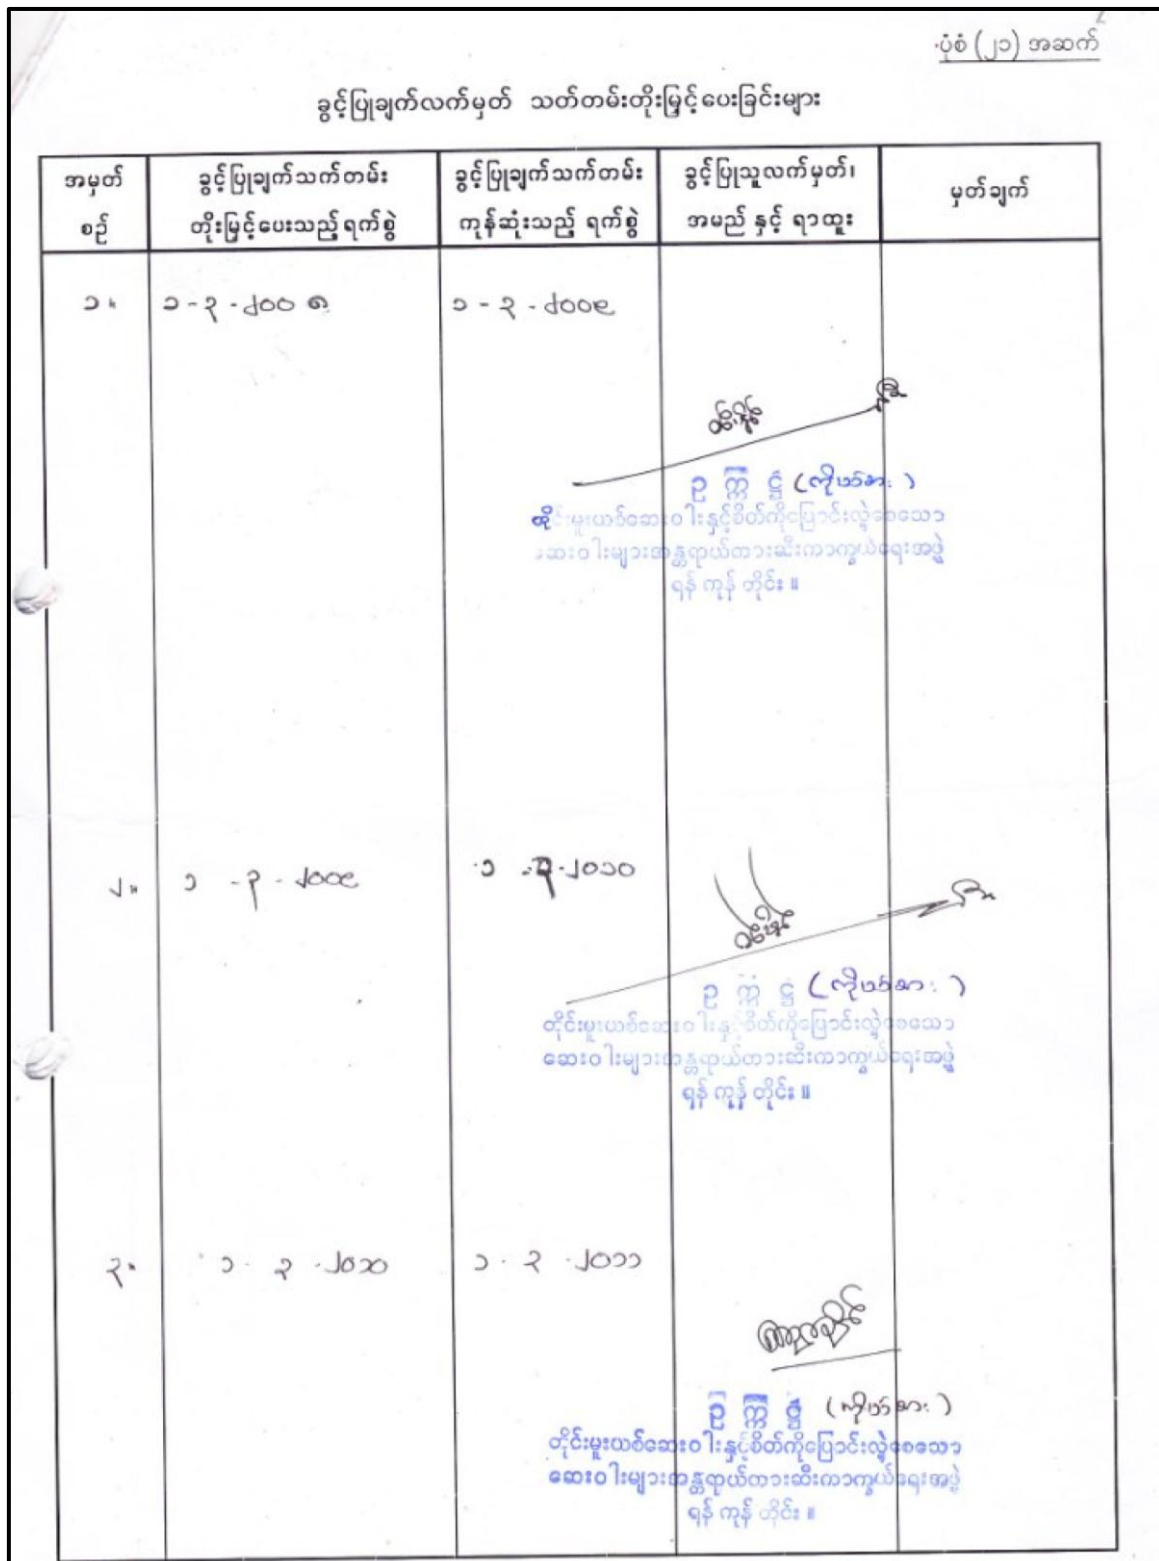 ပုံစံ (၂၁) အဆက်
ခွင့်ပြုချက်လက်မှတ် သတ်တမ်းတိုးမြှင့်ပေးခြင်းများ
အမှတ်
စဉ်
ခွင့်ပြုချက်သက်တမ်း
တိုးမြှင့်ပေးသည့်ရက်စွဲ
ခွင့်ပြုချက်သက်တမ်း
ကုန်ဆုံးသည့် ရက်စွဲ
ခွင့်ပြုသူလက်မှတ်၊
အမည် နှင့် ရာထူး
မှတ်ချက်
၁။ ၁-၃-၂၀၀၈ ၁-၃-၂၀၀၉
ဥ က္က ဋ္ဌ (ကိုယ်စား)
တိုင်းမူးယစ်ဆေးဝါးနှင့်စိတ်ကိုပြောင်းလွဲစေသော
ဆေးဝါးများအန္တရာယ်တားဆီးကာကွယ်ရေးအဖွဲ့
ရန် ကုန် တိုင်း ။
၂။ ၁-၃-၂၀၀၉ ၁-၃-၂၀၁၀
ဥ က္က ဋ္ဌ (ကိုယ်စား)
တိုင်းမူးယစ်ဆေးဝါးနှင့်စိတ်ကိုပြောင်းလွဲစေသော
ဆေးဝါးများအန္တရာယ်တားဆီးကာကွယ်ရေးအဖွဲ့
ရန် ကုန် တိုင်း ။
၃။ ၁-၃-၂၀၁၀ ၁-၃-၂၀၁၁
ဥ က္က ဋ္ဌ (ကိုယ်စား)
တိုင်းမူးယစ်ဆေးဝါးနှင့်စိတ်ကိုပြောင်းလွဲစေသော
ဆေးဝါးများအန္တရာယ်တားဆီးကာကွယ်ရေးအဖွဲ့
ရန် ကုန် တိုင်း ။